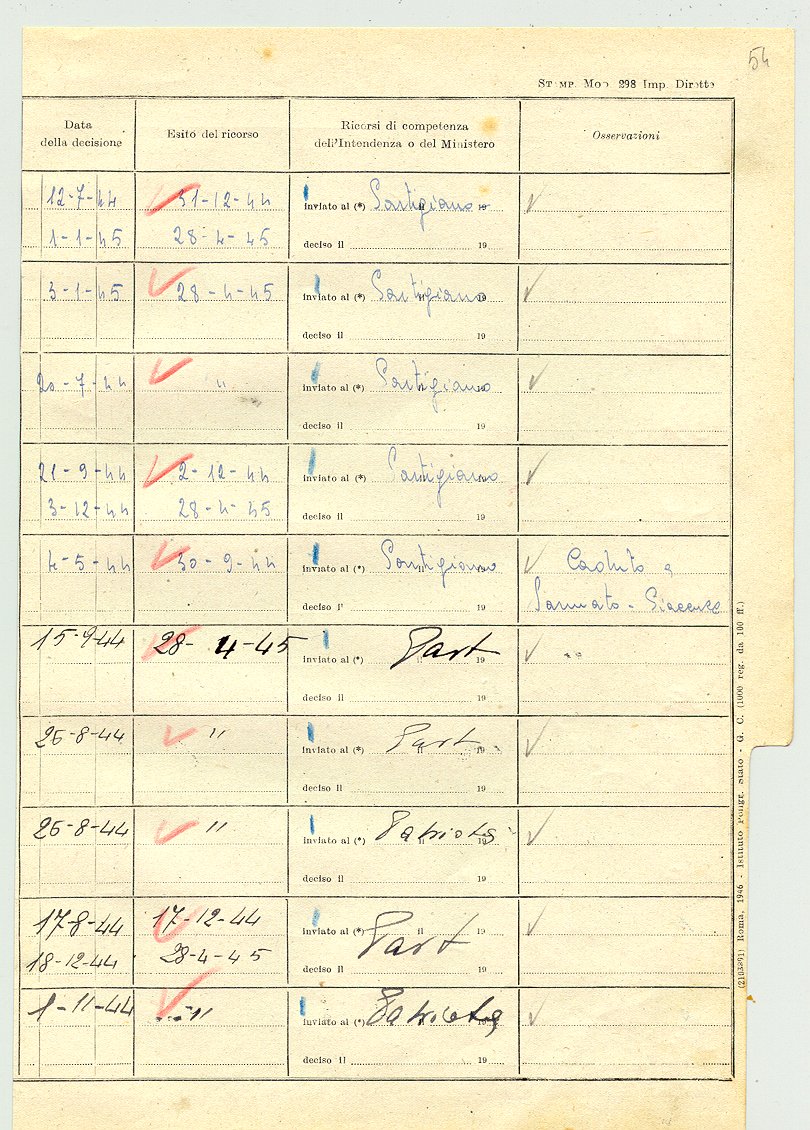 54
STAMP. Mod. 298 Imp. Dirette
Data della decisione
Esito del ricorso
Ricorsi di competenza dell'Intendenza o del Ministero
Osservazioni
12-7-44 31-12-44 inviato al (*) Partigiano il 19
1-1-45 28-4-45 deciso il 19
3-1-45 28-4-45 inviato al (*) Partigiano il 19
deciso il 19
20-7-44 " inviato al (*) Partigiano il 19
deciso il 19
21-9-44 2-12-44 inviato al (*) Partigiano il 19
3-12-44 28-4-45 deciso il 19
4-5-44 30-9-44 inviato al (*) Partigiano il 19 Caduto a
deciso il 19 Sarmato - Piacenza
15-9-44 28-4-45 inviato al (*) Part il 19
deciso il 19
26-8-44 " inviato al (*) Part. il 19
deciso il 19
26-8-44 " inviato al (*) Patriota il 19
deciso il 19
17-8-44 17-12-44 inviato al (*) Part il 19
18-12-44 28-4-45 deciso il 19
1-11-44 " inviato al (*) Patriota il 19
deciso il 19
(2193891) Roma, 1946 - Istituto Poligr. Stato - G. C. (1000 reg. da 100 ff.)